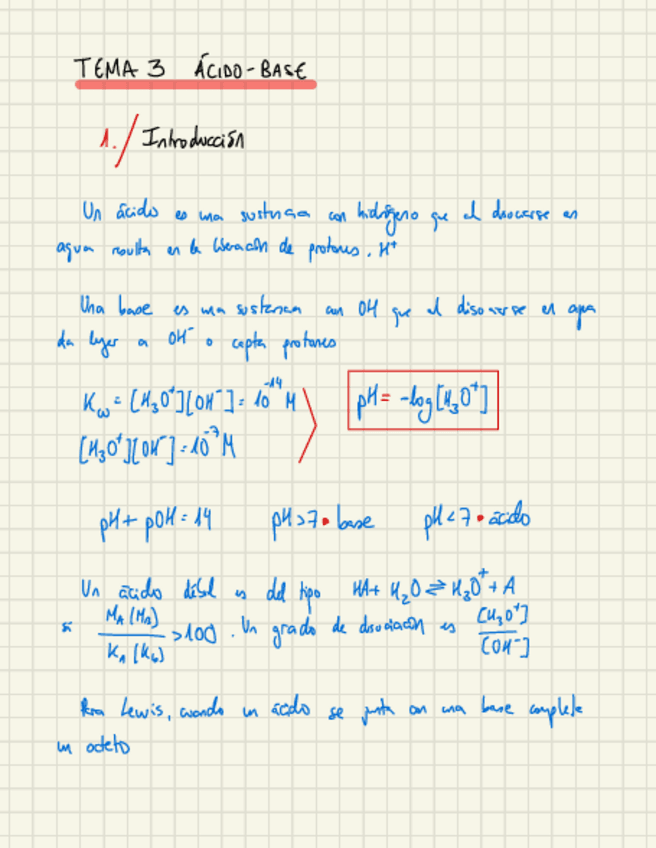 TEMA 3 ÁCIDO-BASE
1./ Introducción
Un ácido es una sustancia con hidrógeno que al disociarse en
agua resulta en la liberación de protones. H⁺
Una base es una sustancia con OH que al disociarse en agua
da lugar a OH⁻ o capta protones
Kw = [H₃O⁺][OH⁻] = 10⁻¹⁴ M
pH = -log[H₃O⁺]
[H₃O⁺][OH⁻] = 10⁻⁷ M
pH + pOH = 14 pH > 7 • base pH < 7 • ácido
Un ácido débil es del tipo HA + H₂O ⇌ H₃O⁺ + A
si M_A (M_B) / K_A (K_b) > 100 . Un grado de disociación es [H₃O⁺] / [OH⁻]
Para Lewis, cuando un ácido se junta con una base completa
un octeto